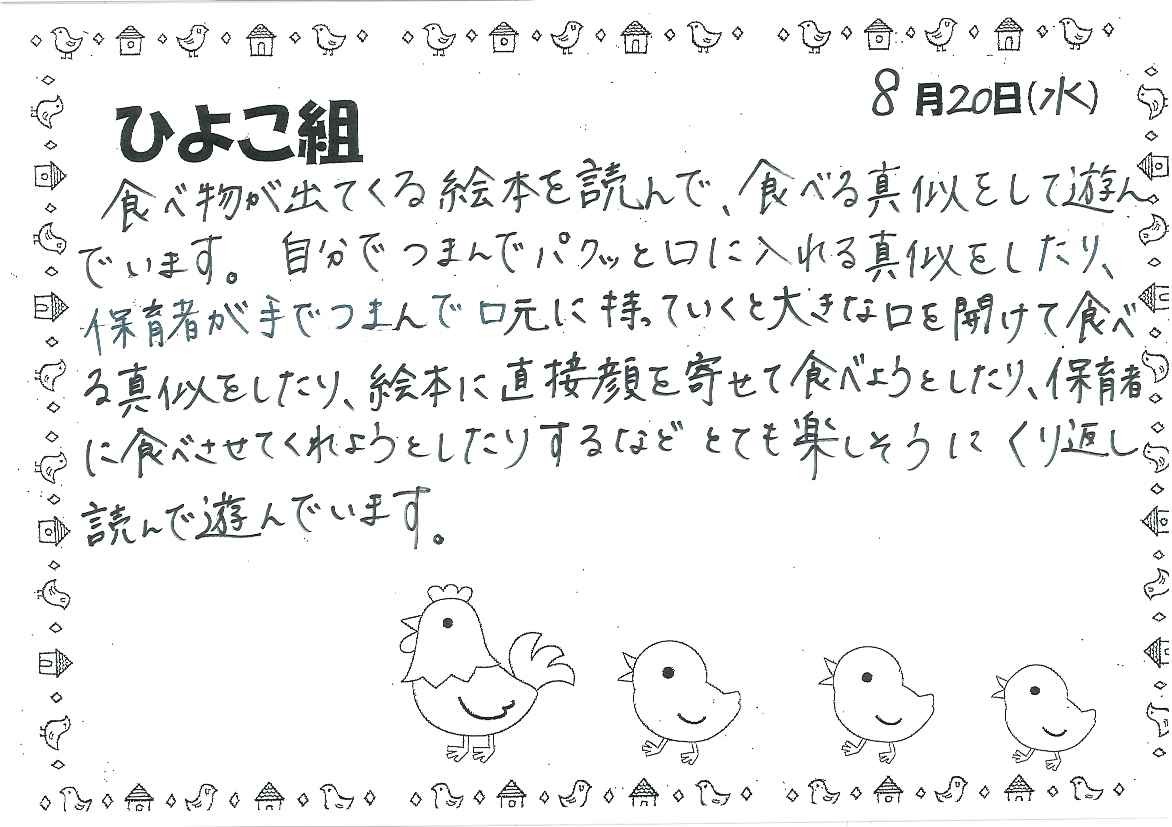 8月20日(水)
ひよこ組
食べ物が出てくる絵本を読んで、食べる真似をして遊ん
でいます。自分でつまんでパクッと口に入れる真似をしたり、
保育者が手でつまんで口元に持っていくと大きな口を開けて食べ
る真似をしたり、絵本に直接顔を寄せて食べようとしたり、保育者
に食べさせてくれようとしたりするなどとても楽しそうにくり返し
読んで遊んでいます。